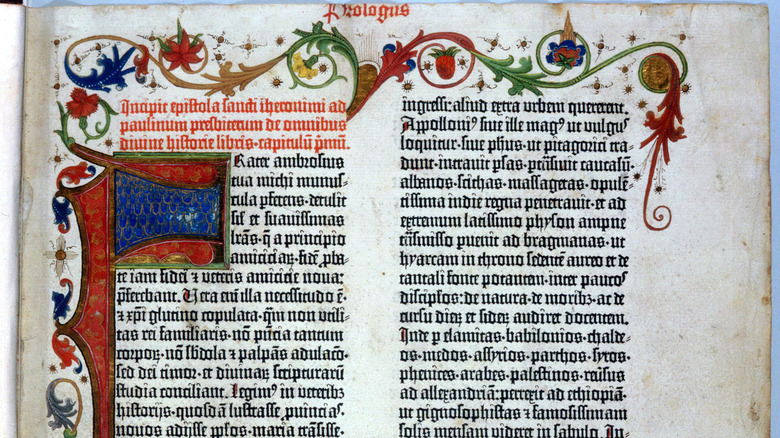 Prologus
Incipit epistola sancti iheronimi ad
paulinum presbiterum de omnibus
diuine historie libris·capitulū pmū.
FRater ambrosius
tua michi munus-
cula pferens·detulit
sil et suauissimas
lrās·q a principio
amiciciaꝝ·fidē pba-
te iam fidei ⁊ veteris amicicie noua:
pferebant. Vera eni illa necessitudo ē·
⁊ xpi glutino copulata·qm non vtili-
tas rei familiaris·nō pntia tantum
corpoꝝ·nō sbdola ⁊ palpās adulaco·
sed dei timor·et diuinaꝝ scripturarū
studia conciliant. Legim⁹ in veteribꝫ
historijs·quosdā lustrasse puincias·
nouos adijsse pplos·maria trāsisse·
ingressi: aliud extra urbem quererent.
Appolloni⁹ siue ille mag⁹ ut vulgus
loquitur·siue phus·ut pitagorici tra-
dunt·intrauit psas·ptrāsiuit caucasū·
albanos·scithas·massagetas·opulē-
tissima indie regna penetrauit·et ad
extremum latissimo physon ampne
trāsmisso puenit ad bragmanas·ut
hyarcam in throno sedentē aureo et de
tantali fonte potantem·inter paucos
discipulos·de natura·de moribꝫ·ac de
cursu dieꝝ et sideꝝ audiret docentem.
Inde p elamitas·babilonios·chalde-
os·medos·assyrios·parthos·syros·
phenices·arabes·palestinos·reuersus
ad allexandriā: perrexit ad ethiopiā·
ut gignosophistas ⁊ famosissimam
solis mensam videret in sabulo. In